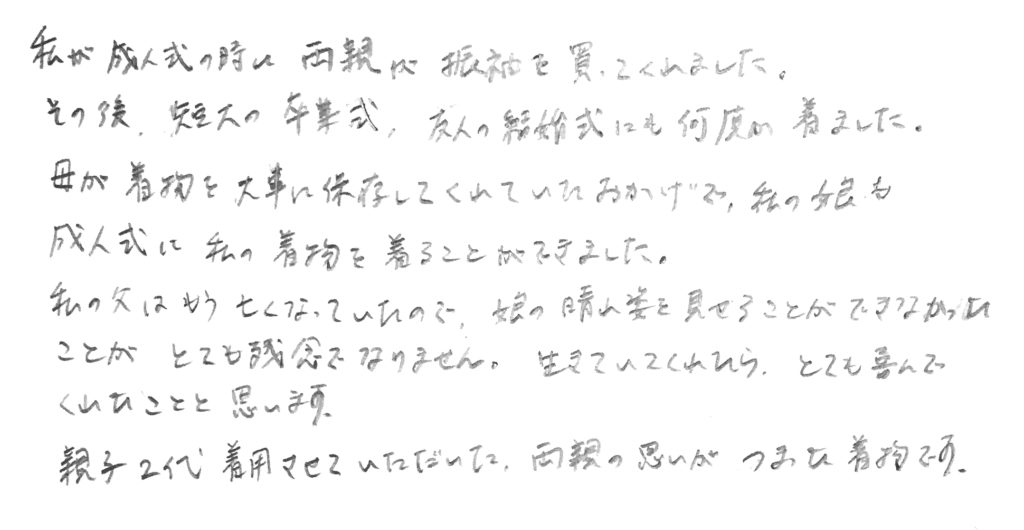 私が成人式の時に両親が振袖を買ってくれました。
その後、短大の卒業式、友人の結婚式にも何度か着ました。
母が着物を大事に保存してくれていたおかげで、私の娘も
成人式に私の着物を着ることができました。
私の父はもう亡くなっていたので、娘の晴れ姿を見せることができなかった
ことがとても残念でなりません。生きていてくれたら、とても喜んで
くれたことと思います。
親子2代着用させていただいた、両親の思いがつまった着物です。